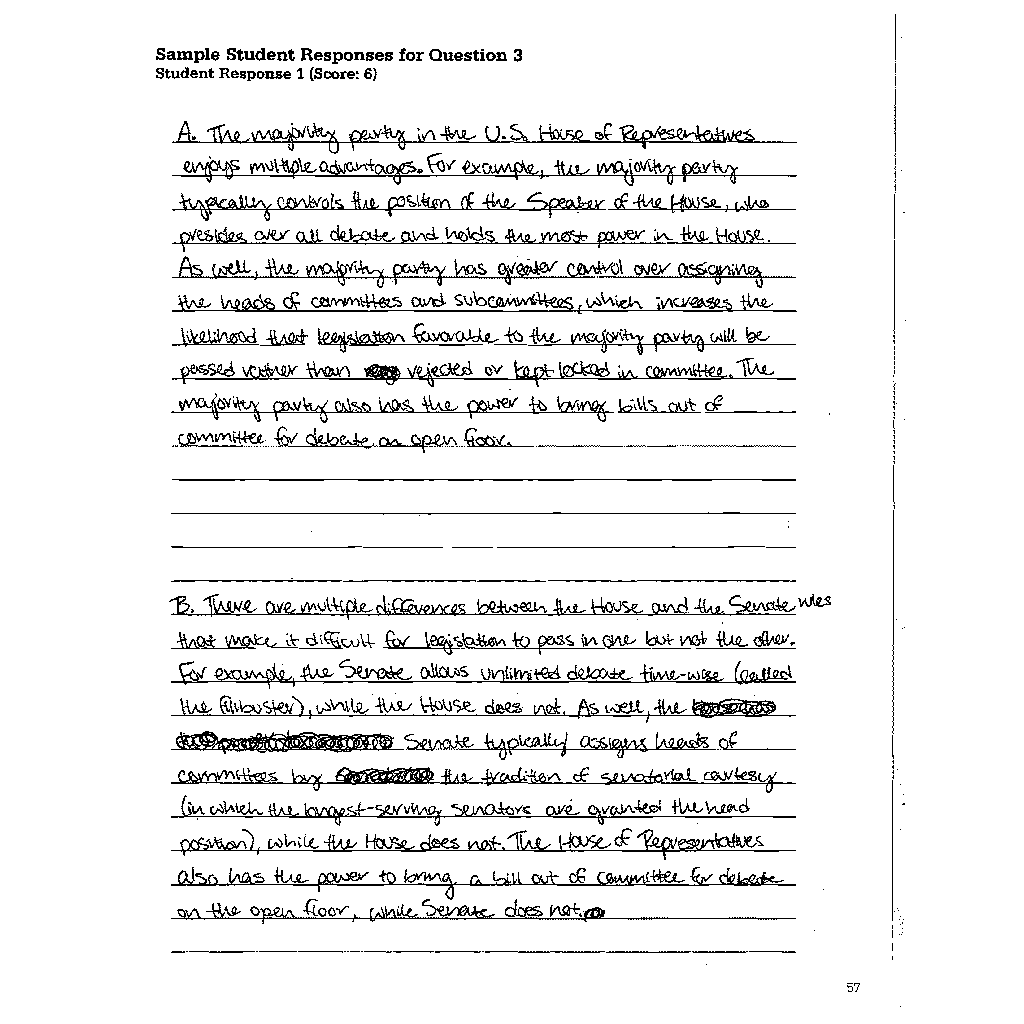 Sample Student Responses for Question 3
Student Response 1 (Score: 6)
A. The majority party in the U.S. House of Representatives
enjoys multiple advantages. For example, the majority party
typically controls the position of the Speaker of the House, who
presides over all debate and holds the most power in the House.
As well, the majority party has greater control over assigning
the heads of committees and subcommittees, which increases the
likelihood that legislation favorable to the majority party will be
passed rather than rejected or kept locked in committee. The
majority party also has the power to bring bills out of
committee for debate on open floor.
B. There are multiple differences between the House and the Senate rules
that make it difficult for legislation to pass in one but not the other.
For example, the Senate allows unlimited debate time-wise (called
the filibuster), while the House does not. As well, the
Senate typically assigns heads of
committees by the tradition of senatorial courtesy
(in which the longest-serving senators are granted the head
position), while the House does not. The House of Representatives
also has the power to bring a bill out of committee for debate
on the open floor, while Senate does not.
57